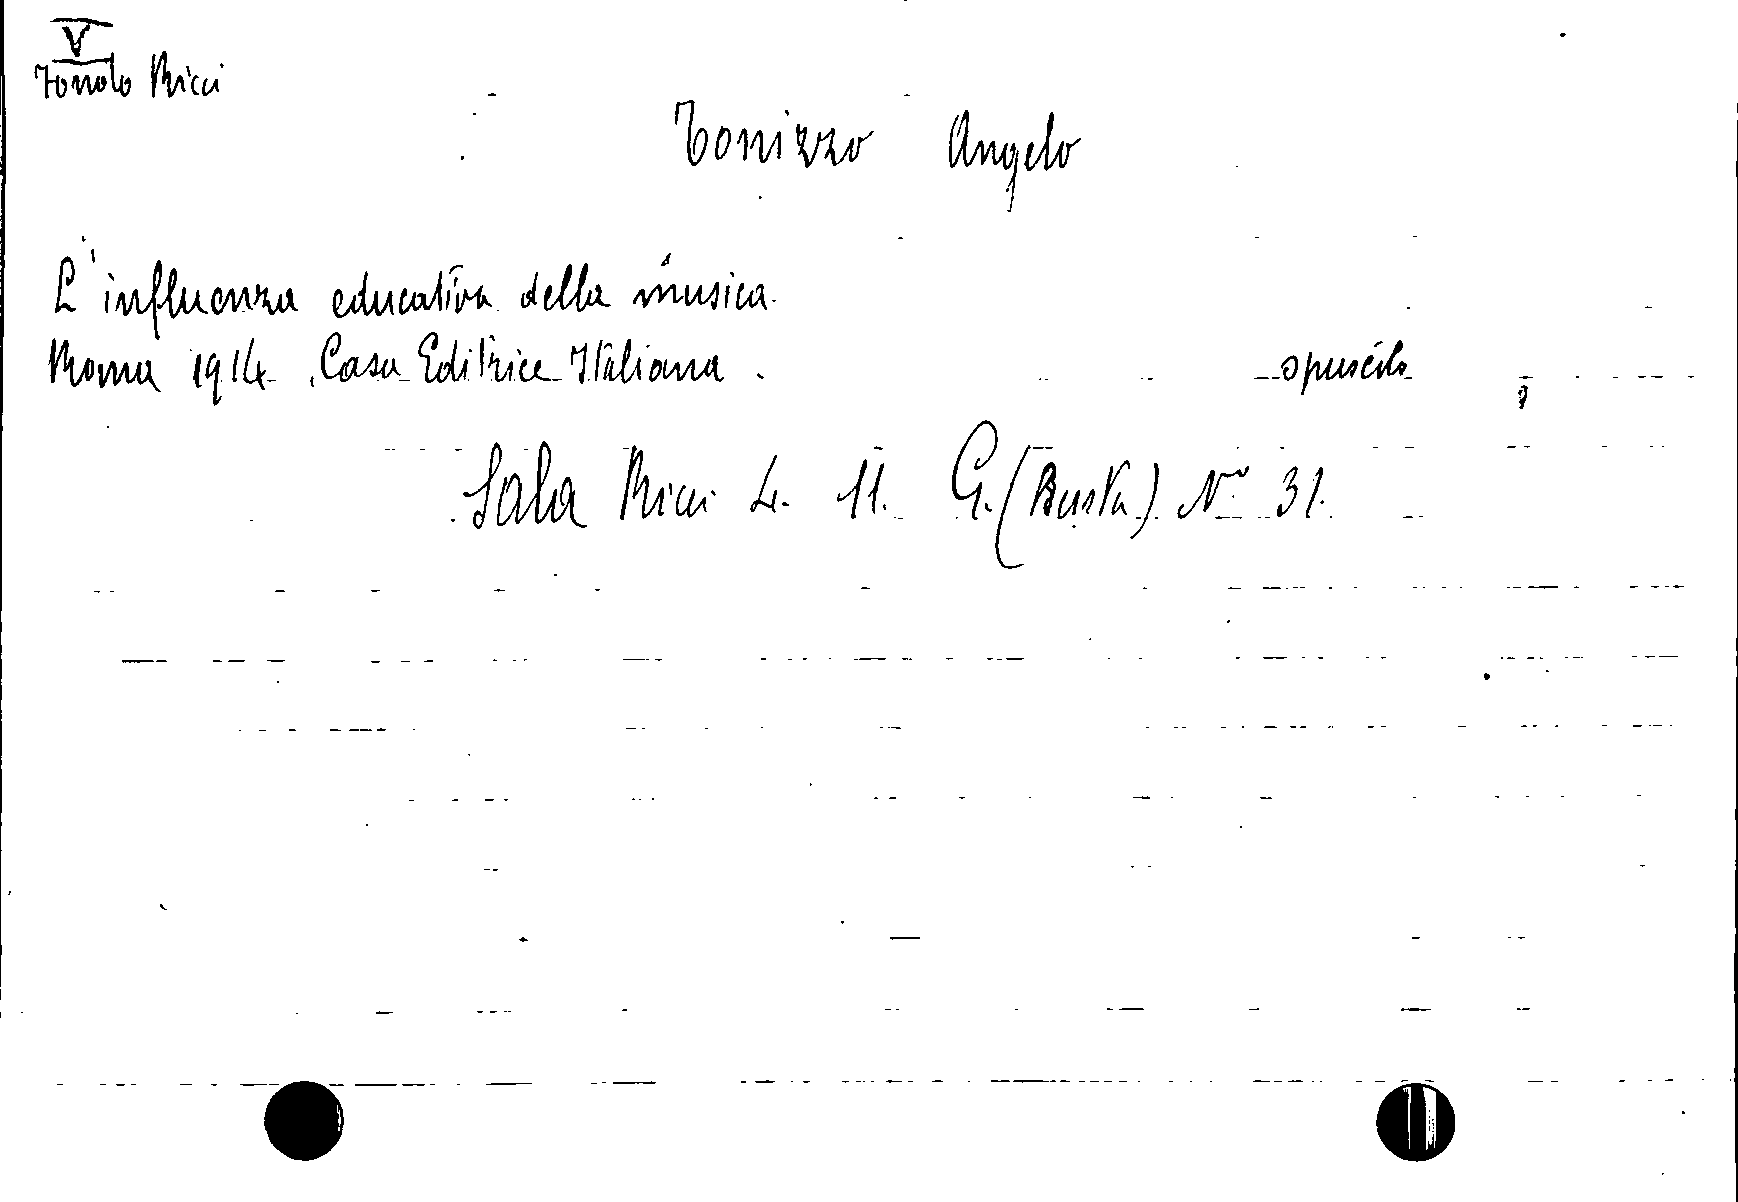 V
Fondo Ricci
Tonizzo Angelo
L'influenza educativa della musica.
Roma 1914. Casa Editrice Italiana. opuscolo
Sala Ricci 4. 11. G. (Busta) N° 31.